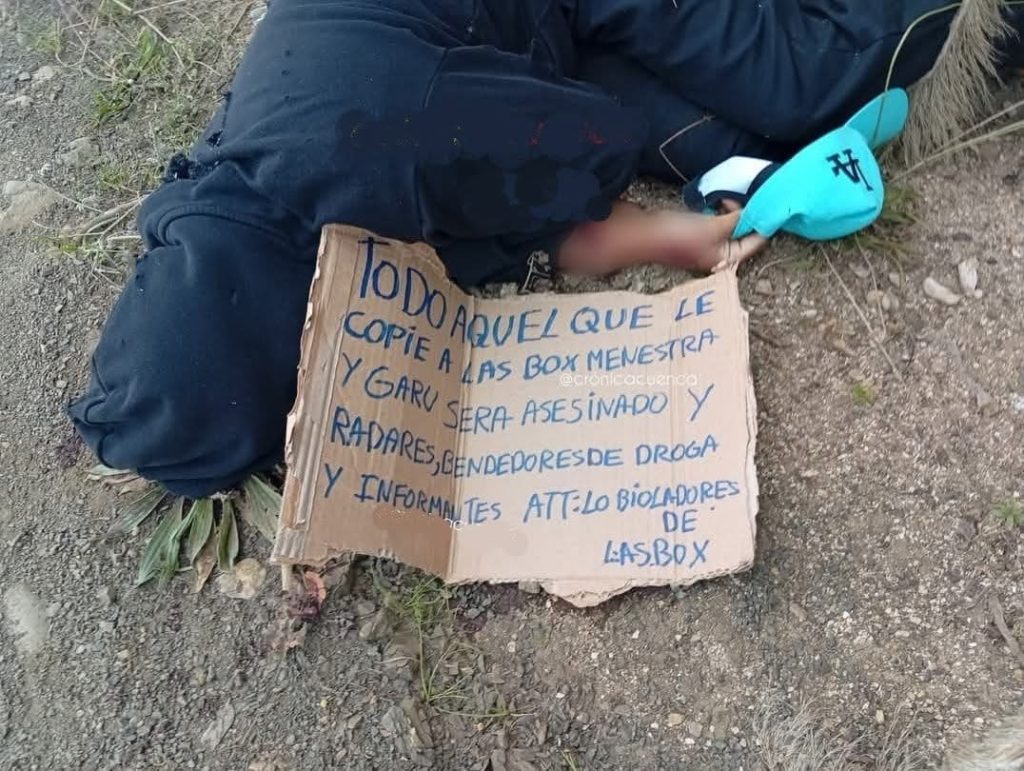 TODO AQUEL QUE LE
COPIE A LAS BOX MENESTRA
@cronicacuenca
Y GARU SERA ASESINADO Y
RADARES, BENDEDORES DE DROGA
Y INFORMANTES ATT: LO BIOLADORES
DE
LAS.BOX
LA